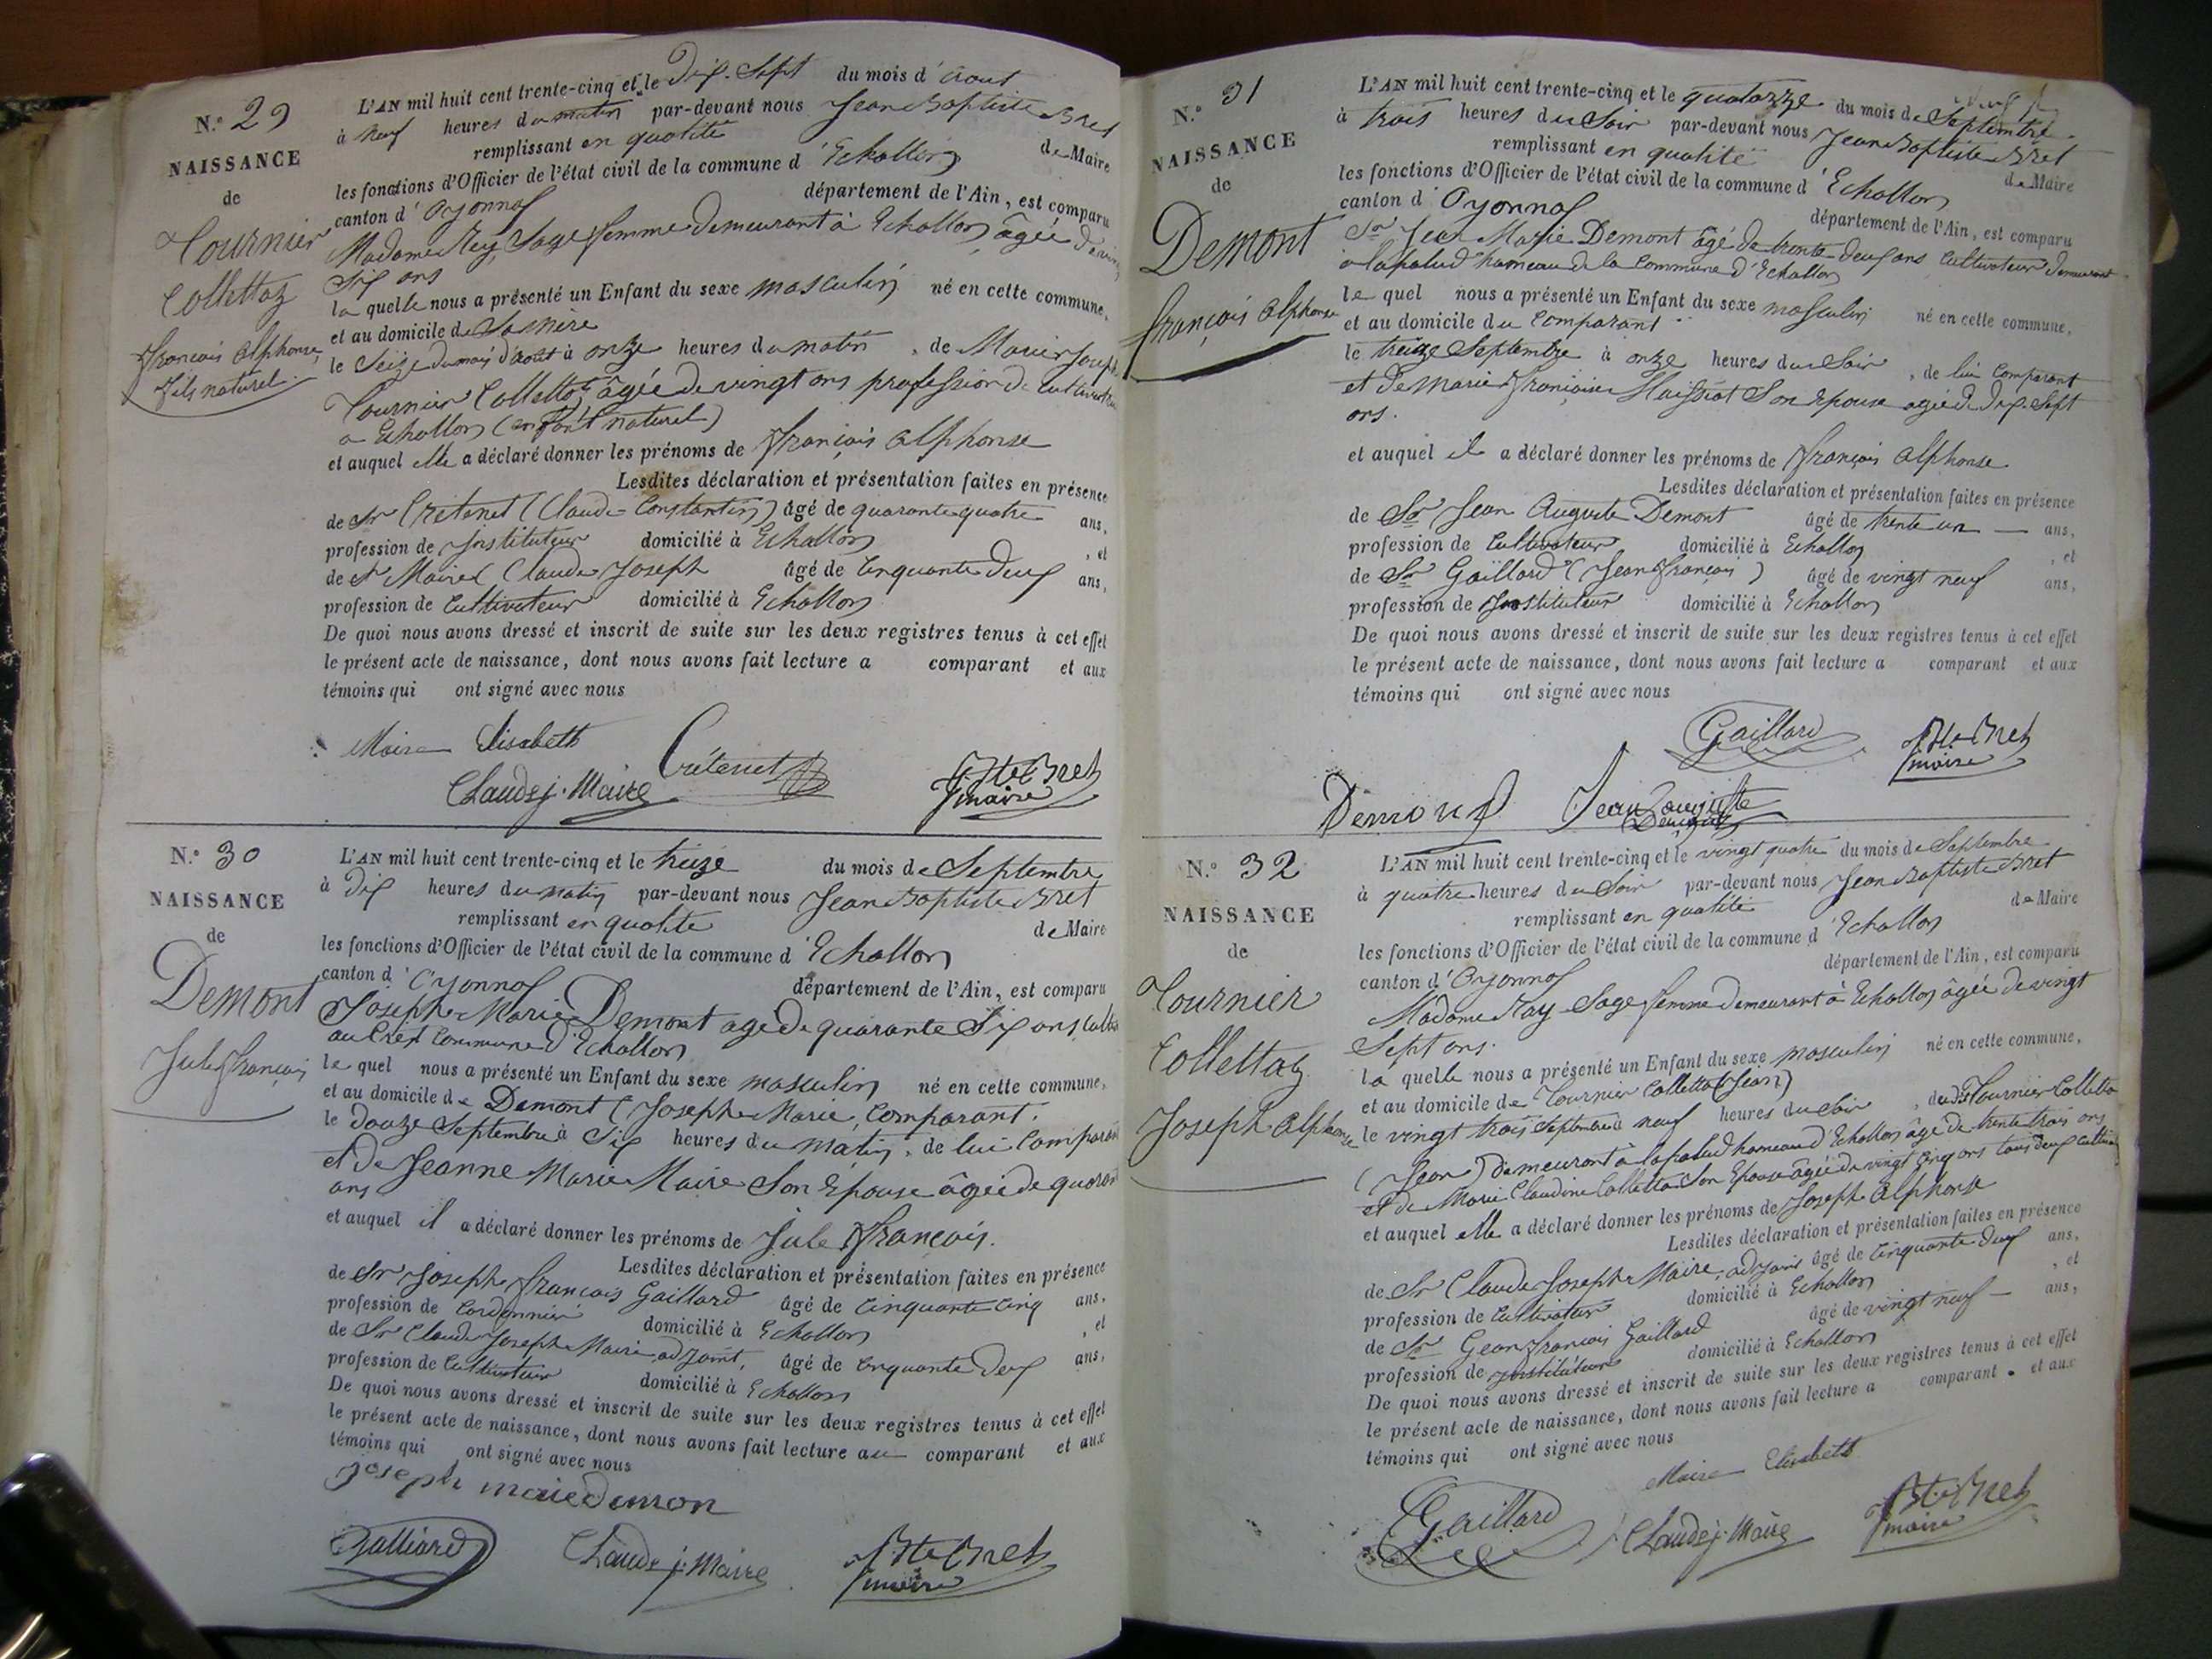 N.° 29
NAISSANCE
de
Tournier
Collettaz
François Alphonse
fils naturel.
L'AN mil huit cent trente-cinq et le Dix-Sept du mois d'Aout
à neuf heures du matin par-devant nous Jean Baptiste Bret
remplissant en qualité de Maire
les fonctions d'Officier de l'état civil de la commune d'Echallon
canton d'Oyonnax département de l'Ain, est comparu
Madame Rey, Sage femme demeurant à Echallon âgée de vingt
Six ans
la quelle nous a présenté un Enfant du sexe masculin né en cette commune,
et au domicile de Sa Mère
le Seize du mois d'août à onze heures du matin, de Marie Josephte
Tournier Colletta, âgée de vingt ans profession de cultivatrice
à Echallon (enfant naturel)
et auquel elle a déclaré donner les prénoms de François Alphonse
Lesdites déclaration et présentation faites en présence
de Sr Cretenet (Claude-Constantin) âgé de quarante quatre ans,
profession de Instituteur domicilié à Echallon, et
de Sr Maire Claude Joseph âgé de Cinquante deux ans,
profession de Cultivateur domicilié à Echallon
De quoi nous avons dressé et inscrit de suite sur les deux registres tenus à cet effet
le présent acte de naissance, dont nous avons fait lecture a comparant et aux
témoins qui ont signé avec nous
Maire Elisabeth Crétenet
Claude j. Maire JBte Bret
maire
N.° 30
NAISSANCE
de
Demont
Jule François
L'AN mil huit cent trente-cinq et le treize du mois de Septembre
à Dix heures du matin par-devant nous Jean Baptiste Bret
remplissant en qualité de Maire
les fonctions d'Officier de l'état civil de la commune d'Echallon
canton d'Oyonnax département de l'Ain, est comparu
Joseph Marie Demont agé de quarante Six ans, cultiv
au Crêt Commune d'Echallon
le quel nous a présenté un Enfant du sexe masculin né en cette commune,
et au domicile de Demont (Joseph Marie, Comparant.
le Douze Septembre à Six heures du matin, de lui Comparant
et de Jeanne Marie Maire Son Epouse âgée de quarante
ans
et auquel il a déclaré donner les prénoms de Jule François.
Lesdites déclaration et présentation faites en présence
de Sr Joseph François Gaillard âgé de Cinquante Cinq ans,
profession de Cordonnier domicilié à Echallon, et
de Sr Claude Joseph Maire, adjoint, âgé de Cinquante Deux ans,
profession de Cultivateur domicilié à Echallon
De quoi nous avons dressé et inscrit de suite sur les deux registres tenus à cet effet
le présent acte de naissance, dont nous avons fait lecture au comparant et aux
témoins qui ont signé avec nous
joseph marie demon
Galliard Claude j. Maire JBte Bret
maire
N.° 31
NAISSANCE
de
Demont
François Alphonse
L'AN mil huit cent trente-cinq et le quatorze du mois de Septembre
à trois heures du Soir par-devant nous Jean Baptiste Bret
remplissant en qualité de Maire
les fonctions d'Officier de l'état civil de la commune d'Echallon
canton d'Oyonnax département de l'Ain, est comparu
Sr Jean Marie Demont âgé de trente-deux ans Cultivateur demeurant
à lapalud hameau de la Commune d'Echallon
le quel nous a présenté un Enfant du sexe masculin né en cette commune,
et au domicile du Comparant
le treize Septembre à onze heures du Soir, de lui Comparant
et de Marie Françoise Maissiat Son Epouse agée de Dix-Sept
ans.
et auquel il a déclaré donner les prénoms de François Alphonse
Lesdites déclaration et présentation faites en présence
de Sr Jean Auguste Demont âgé de trente un ans,
profession de Cultivateur domicilié à Echallon, et
de Sr Gaillard (Jean François) âgé de vingt neuf ans,
profession de Instituteur domicilié à Echallon
De quoi nous avons dressé et inscrit de suite sur les deux registres tenus à cet effet
le présent acte de naissance, dont nous avons fait lecture a comparant et aux
témoins qui ont signé avec nous
Gaillard JBte Bret
maire
Demont Jean auguste
Demont
N.° 32
NAISSANCE
de
Tournier
Collettaz
Joseph Alphonse
L'AN mil huit cent trente-cinq et le vingt quatre du mois de Septembre
à quatre heures du Soir par-devant nous Jean Baptiste Bret
remplissant en qualité de Maire
les fonctions d'Officier de l'état civil de la commune d'Echallon
canton d'Oyonnax département de l'Ain, est comparu
Madame Ray Sage femme demeurant à Echallon âgée de vingt
Sept ans.
la quelle nous a présenté un Enfant du sexe masculin né en cette commune,
et au domicile de Tournier Colletta (Jean)
le vingt trois Septembre à neuf heures du Soir, du dit Tournier Colletta
(Jean) demeurant à lapalud hameau d'Echallon âgé de trente trois ans
et de Marie Claudine Colletta Son Epouse âgée de vingt cinq ans tous deux cultiv
et auquel elle a déclaré donner les prénoms de Joseph Alphonse
Lesdites déclaration et présentation faites en présence
de Sr Claude Joseph Maire, adjoint âgé de Cinquante deux ans,
profession de Cultivateur domicilié à Echallon, et
de Sr Gean François Gaillard âgé de vingt neuf ans,
profession de Instituteur domicilié à Echallon
De quoi nous avons dressé et inscrit de suite sur les deux registres tenus à cet effet
le présent acte de naissance, dont nous avons fait lecture a comparant. et aux
témoins qui ont signé avec nous
Maire Elisabeth
Gaillard Claude j. Maire JBte Bret
maire